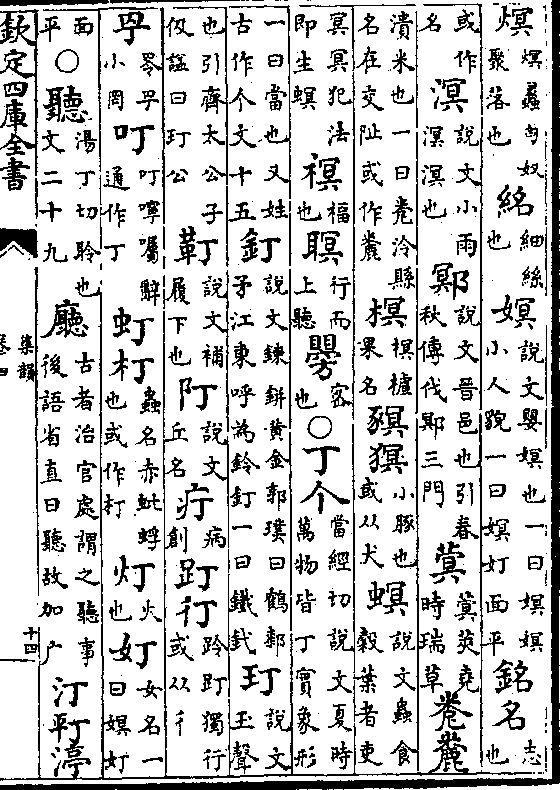 熐熐蠡匈奴聚落也 細絲也 嫇說文嬰嫇也一曰嫇嫇小人貌一曰嫇奵面平 銘名志也
或作名 溟說文小雨溟溟也 鄍說文晉邑也引春秋傳伐鄍三門 蓂蓂莢堯時瑞草
漬米也一曰泠縣名在交阯或作 榠榠樝果名 豯猽小豚也或从犬 螟說文蟲食穀葉者吏
冥冥犯法即生螟 福也 行而上聽 容也 ○丁个當經切說文夏時萬物皆丁實象形
一曰當也又姓古作个文十五 釘說文鍊鉼黃金郭璞曰鶴䣕矛江東呼為鈴釘一曰鐵釴 玎說文玉聲
也引齊太公子伋諡曰玎公 靪說文補履下也 說文丘名 疔病創 跉獨行或从彳
小罔 叮叮嚀囑辭通作丁 虰朾蟲名赤虰蜉也或作朾 灯火也 奵女名一曰嫇奵
面平 ○聽湯丁切聆也文二十九 廳古者治官處謂之聽事後語省直曰聽故加广 汀渟
欽定四庫全書
集韻
卷四
十四